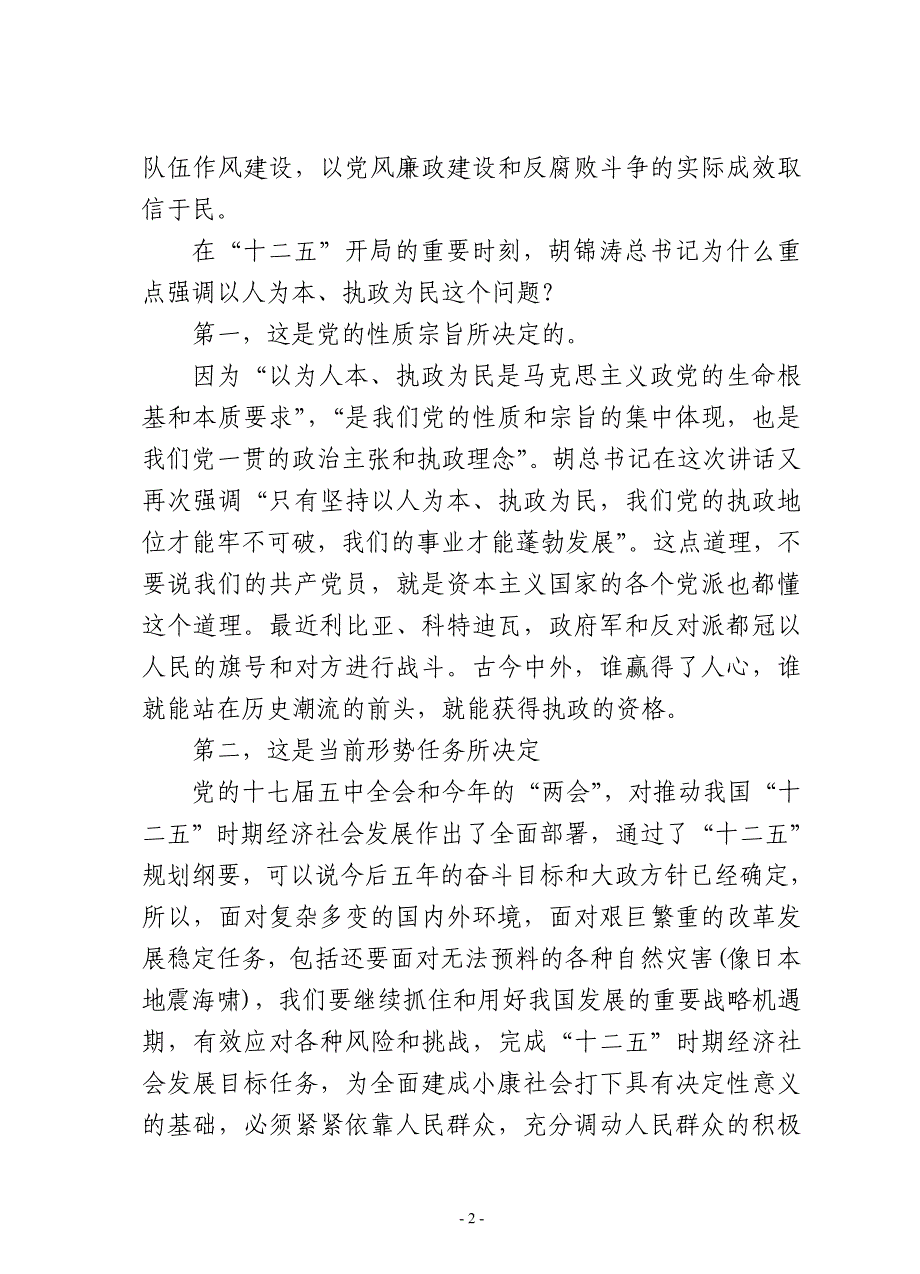 队伍作风建设，以党风廉政建设和反腐败斗争的实际成效取
信于民。
在“十二五”开局的重要时刻，胡锦涛总书记为什么重
点强调以人为本、执政为民这个问题？
第一，这是党的性质宗旨所决定的。
因为“以为人本、执政为民是马克思主义政党的生命根
基和本质要求”，“是我们党的性质和宗旨的集中体现，也是
我们党一贯的政治主张和执政理念”。胡总书记在这次讲话又
再次强调“只有坚持以人为本、执政为民，我们党的执政地
位才能牢不可破，我们的事业才能蓬勃发展”。这点道理，不
要说我们的共产党员，就是资本主义国家的各个党派也都懂
这个道理。最近利比亚、科特迪瓦，政府军和反对派都冠以
人民的旗号和对方进行战斗。古今中外，谁赢得了人心，谁
就能站在历史潮流的前头，就能获得执政的资格。
第二，这是当前形势任务所决定
党的十七届五中全会和今年的“两会”，对推动我国“十
二五”时期经济社会发展作出了全面部署，通过了“十二五”
规划纲要，可以说今后五年的奋斗目标和大政方针已经确定，
所以，面对复杂多变的国内外环境，面对艰巨繁重的改革发
展稳定任务，包括还要面对无法预料的各种自然灾害(像日本
地震海啸)，我们要继续抓住和用好我国发展的重要战略机遇
期，有效应对各种风险和挑战，完成“十二五”时期经济社
会发展目标任务，为全面建成小康社会打下具有决定性意义
的基础，必须紧紧依靠人民群众，充分调动人民群众的积极
- 2 -